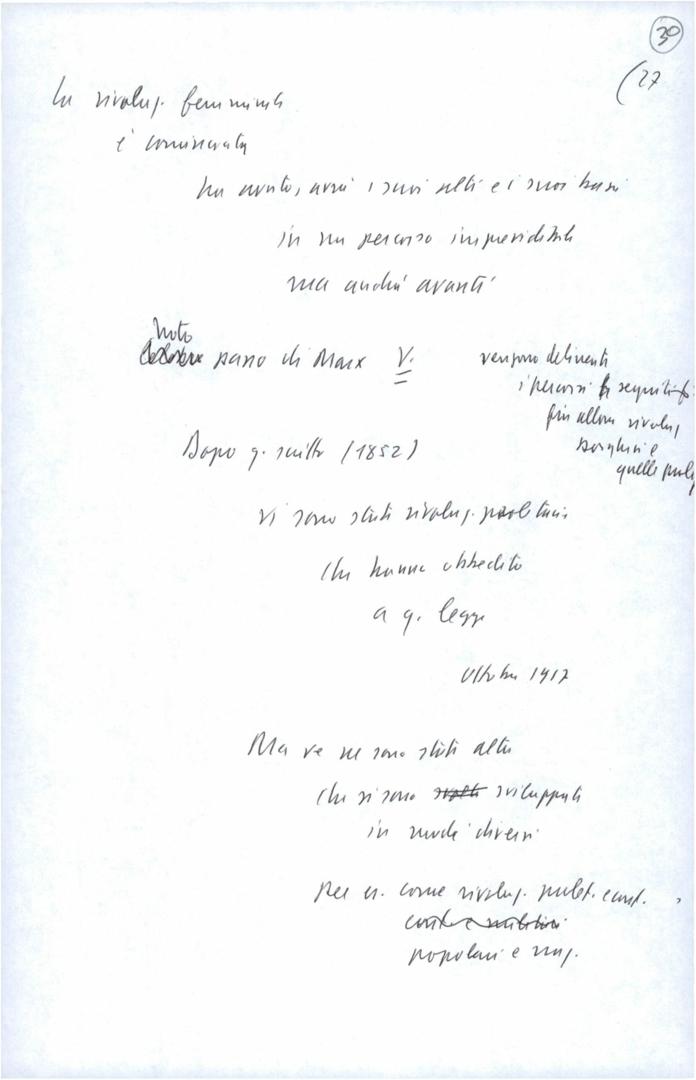 30
(27
La rivoluz. femminile
è cominciata
ha avuto, avrà i suoi alti e i suoi bassi
in un percorso imprevedibile
ma andrà avanti
Noto
passo di Marx V.
vengono delineati
i percorsi seguiti
fin allora rivoluz.
borghesi e
quelle prol.
Dopo q. scritto (1852)
vi sono state rivoluz. proletarie
che hanno obbedito
a q. legge
Ottobre 1917
Ma ve ne sono state altre
che si sono svolte sviluppate
in modi diversi
per es. come rivoluz. prolet. cont.
popolari e naz.